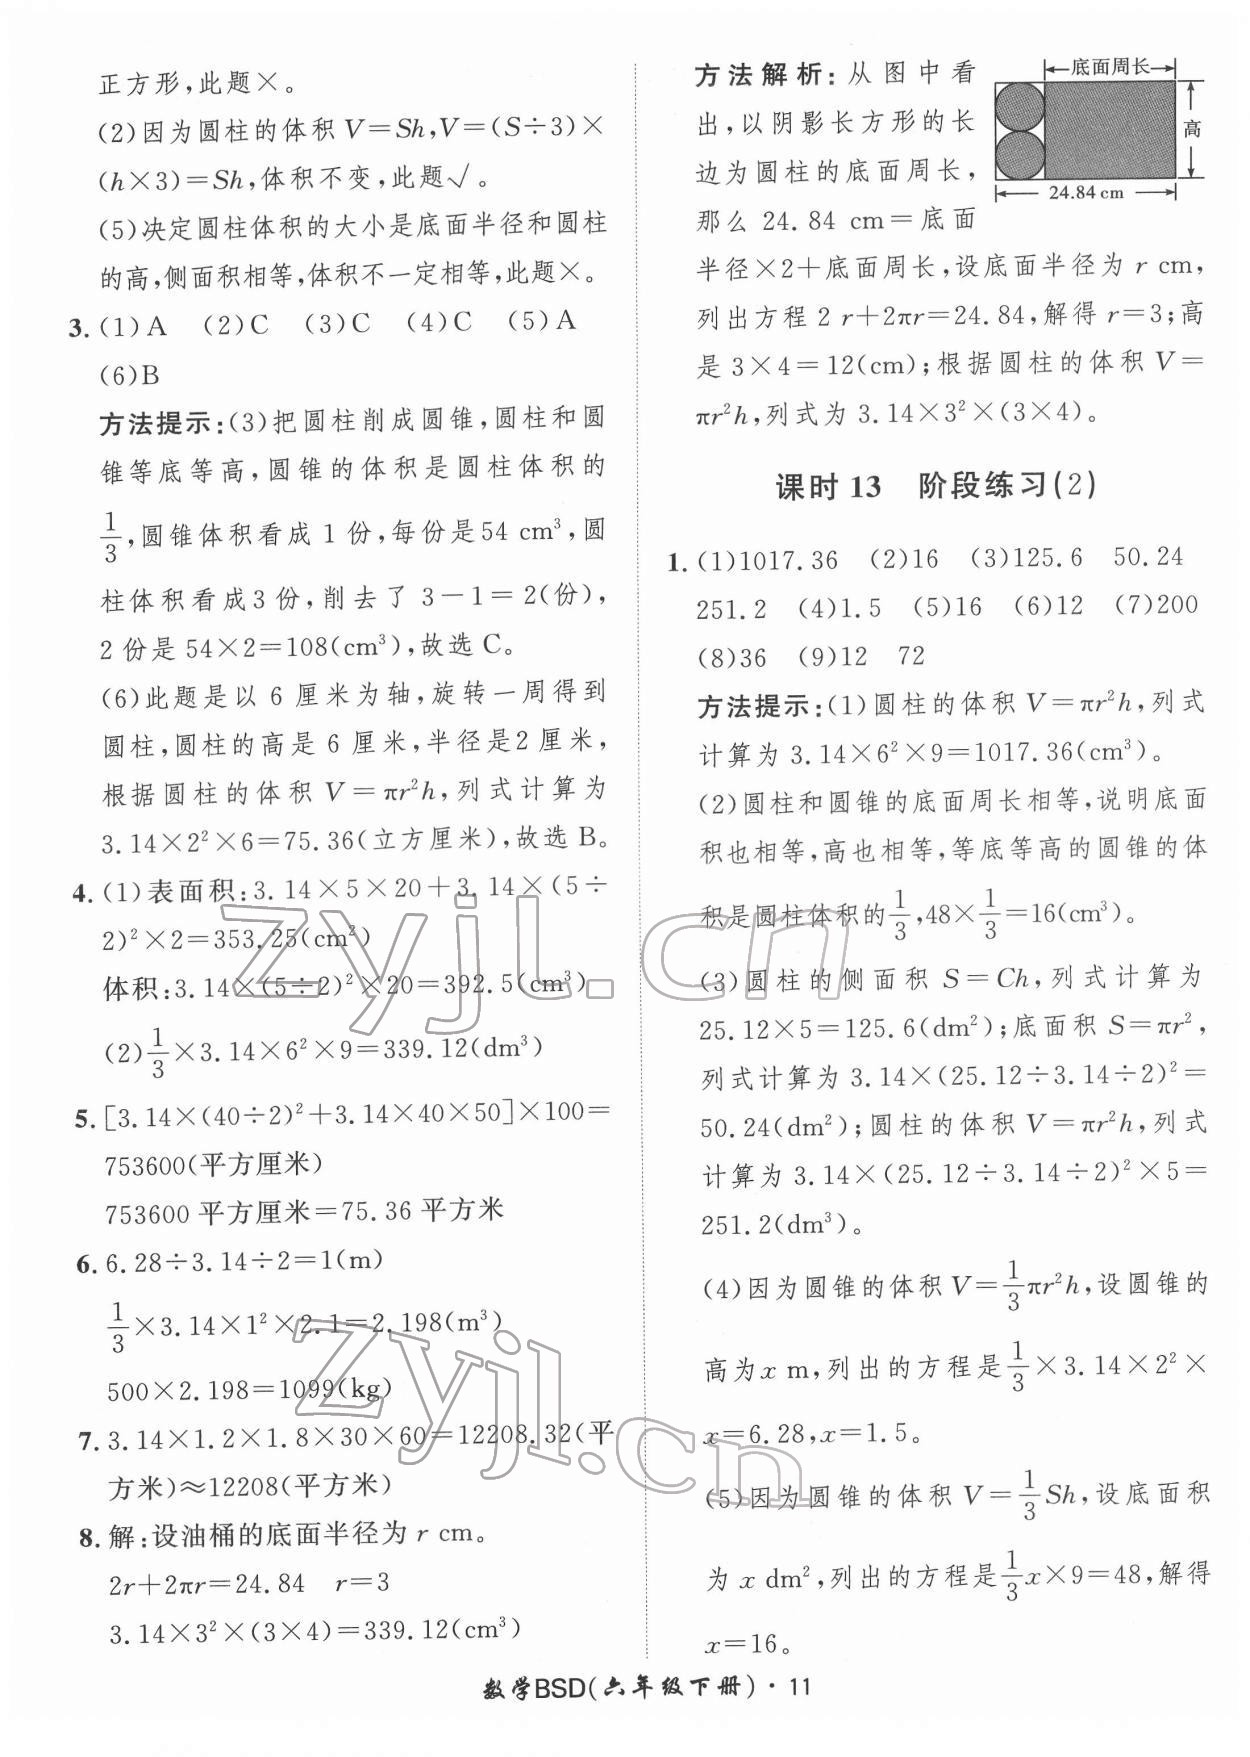 正方形,此题×。
(2)因为圆柱的体积V=Sh,V=(S÷3)×
(h×3)=Sh,体积不变,此题√。
(5)决定圆柱体积的大小是底面半径和圆柱
的高,侧面积相等,体积不一定相等,此题×。
3. (1)A (2)C (3)C (4)C (5)A
(6)B
方法提示:(3)把圆柱削成圆锥,圆柱和圆
锥等底等高,圆锥的体积是圆柱体积的
1/3,圆锥体积看成1份,每份是54 cm³,圆
柱体积看成3份,削去了3-1=2(份),
2份是54×2=108(cm³),故选C。
(6)此题是以6厘米为轴,旋转一周得到
圆柱,圆柱的高是6厘米,半径是2厘米,
根据圆柱的体积V=πr²h,列式计算为
3.14×2²×6=75.36(立方厘米),故选B。
4. (1)表面积:3.14×5×20+3.14×(5÷
2)²×2=353.25(cm²)
体积:3.14×(5÷2)²×20=392.5(cm³)
(2)1/3×3.14×6²×9=339.12(dm³)
5. [3.14×(40÷2)²+3.14×40×50]×100=
753600(平方厘米)
753600平方厘米=75.36平方米
6. 6.28÷3.14÷2=1(m)
1/3×3.14×1²×2.1=2.198(m³)
500×2.198=1099(kg)
7. 3.14×1.2×1.8×30×60=12208.32(平
方米)≈12208(平方米)
8. 解:设油桶的底面半径为r cm。
2r+2πr=24.84 r=3
3.14×3²×(3×4)=339.12(cm³)
方法解析:从图中看
出,以阴影长方形的长
边为圆柱的底面周长,
那么24.84 cm=底面
底面周长
高
24.84 cm
半径×2+底面周长,设底面半径为r cm,
列出方程2r+2πr=24.84,解得r=3;高
是3×4=12(cm);根据圆柱的体积V=
πr²h,列式为3.14×3²×(3×4)。
课时13 阶段练习(2)
1. (1)1017.36 (2)16 (3)125.6 50.24
251.2 (4)1.5 (5)16 (6)12 (7)200
(8)36 (9)12 72
方法提示:(1)圆柱的体积V=πr²h,列式
计算为3.14×6²×9=1017.36(cm³)。
(2)圆柱和圆锥的底面周长相等,说明底面
积也相等,高也相等,等底等高的圆锥的体
积是圆柱体积的1/3,48×1/3=16(cm³)。
(3)圆柱的侧面积S=Ch,列式计算为
25.12×5=125.6(dm²);底面积S=πr²,
列式计算为3.14×(25.12÷3.14÷2)²=
50.24(dm²);圆柱的体积V=πr²h,列式
计算为3.14×(25.12÷3.14÷2)²×5=
251.2(dm³)。
(4)因为圆锥的体积V=1/3πr²h,设圆锥的
高为x m,列出的方程是1/3×3.14×2²×
x=6.28,x=1.5。
(5)因为圆锥的体积V=1/3Sh,设底面积
为x dm²,列出的方程是1/3x×9=48,解得
x=16。
数学BSD(六年级下册)·11
zyjl.cn
zyjl.cn